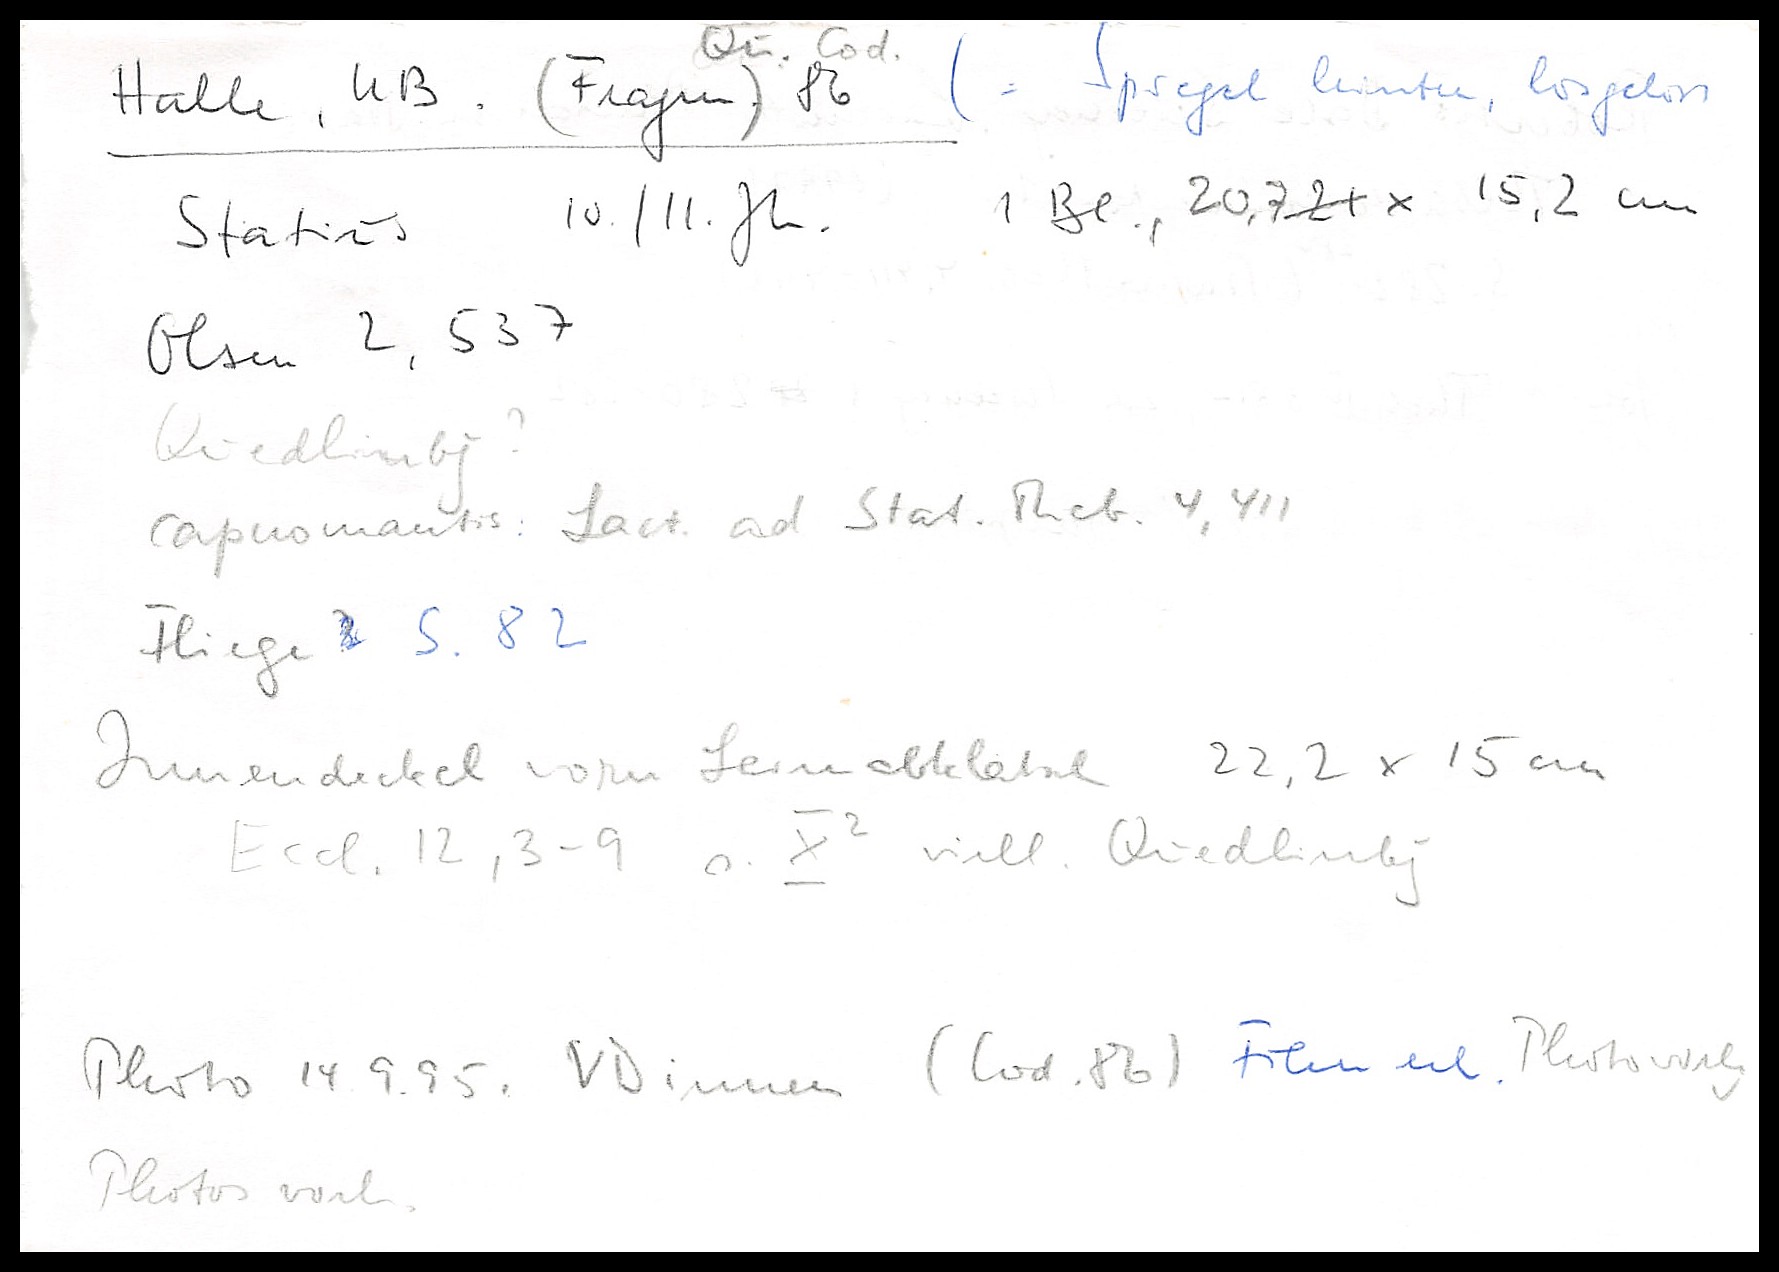 Qu. Cod.
Halle, UB. (Fragm.) 86 (= Spiegel hinten, losgelöst
Statius 10./11. Jh. 1 Bl., 20,7 x 15,2 cm
Olsen 2, 537
Quedlinbg?
capnomantis: Lact. ad Stat. Theb. 4, 411
Fliege S. 82
Innendeckel vorn Leimabklatsch 22,2 x 15 cm
Eccl. 12, 3-9 s. X² viell. Quedlinbg
Photo 14.9.95. VD innen (Cod. 86) Film erl. Photo vorh.
Photos vorh.